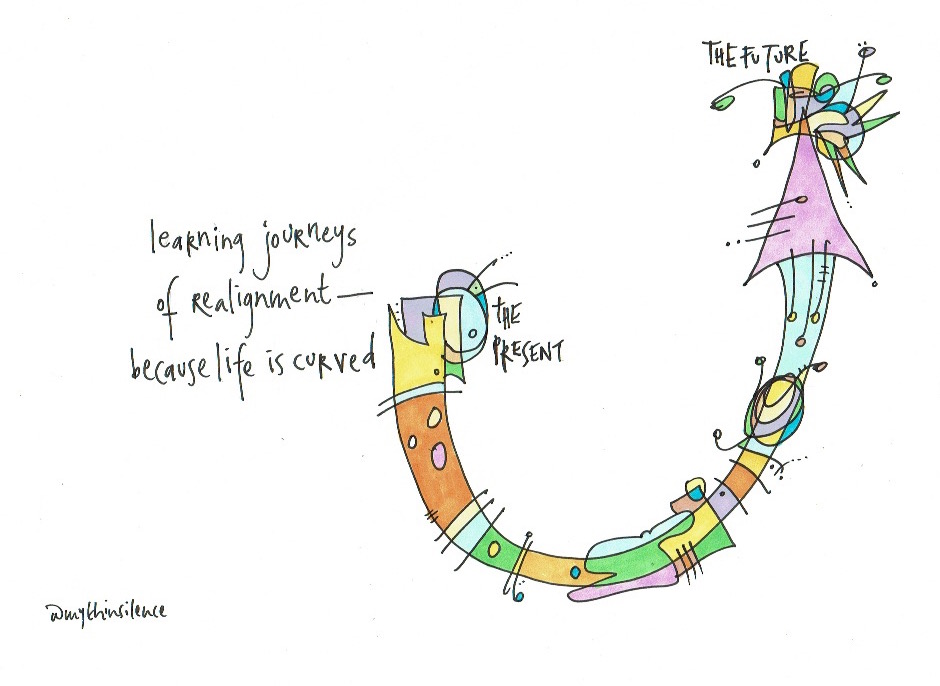 THE FUTURE
learning journeys
of realignment —
because life is curved
THE
PRESENT
@mythinsilence